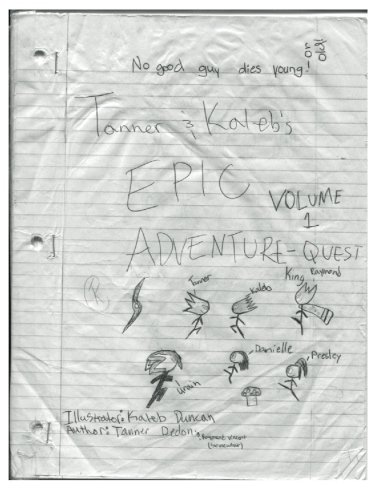 No good guy dies young! - or old!
Tanner & Kaleb's
EPIC VOLUME 1
ADVENTURE-QUEST
R
Tanner
Kaleb
King Raymond
Danielle
Presley
Illustrator: Kaleb Duncan
Author: Tanner Dedon